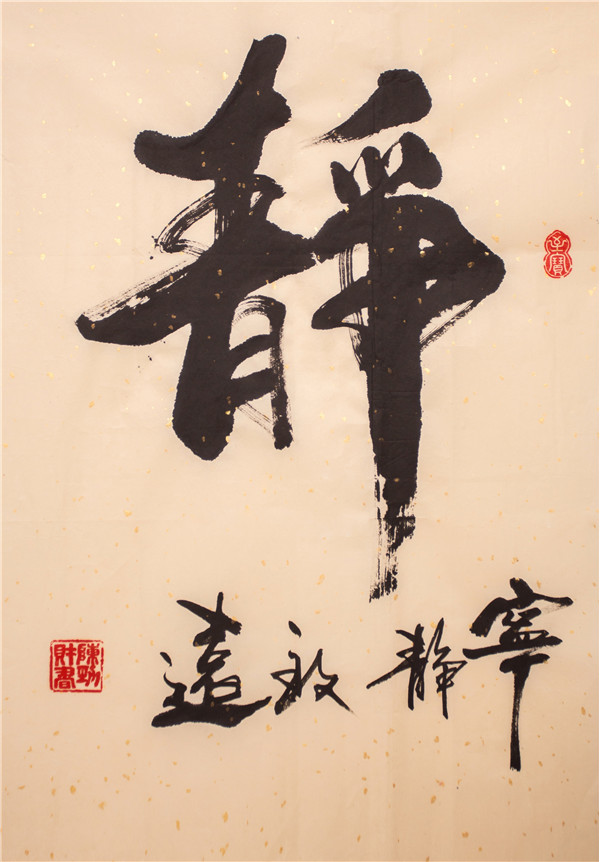 靜
寧靜致遠
陳功
財書